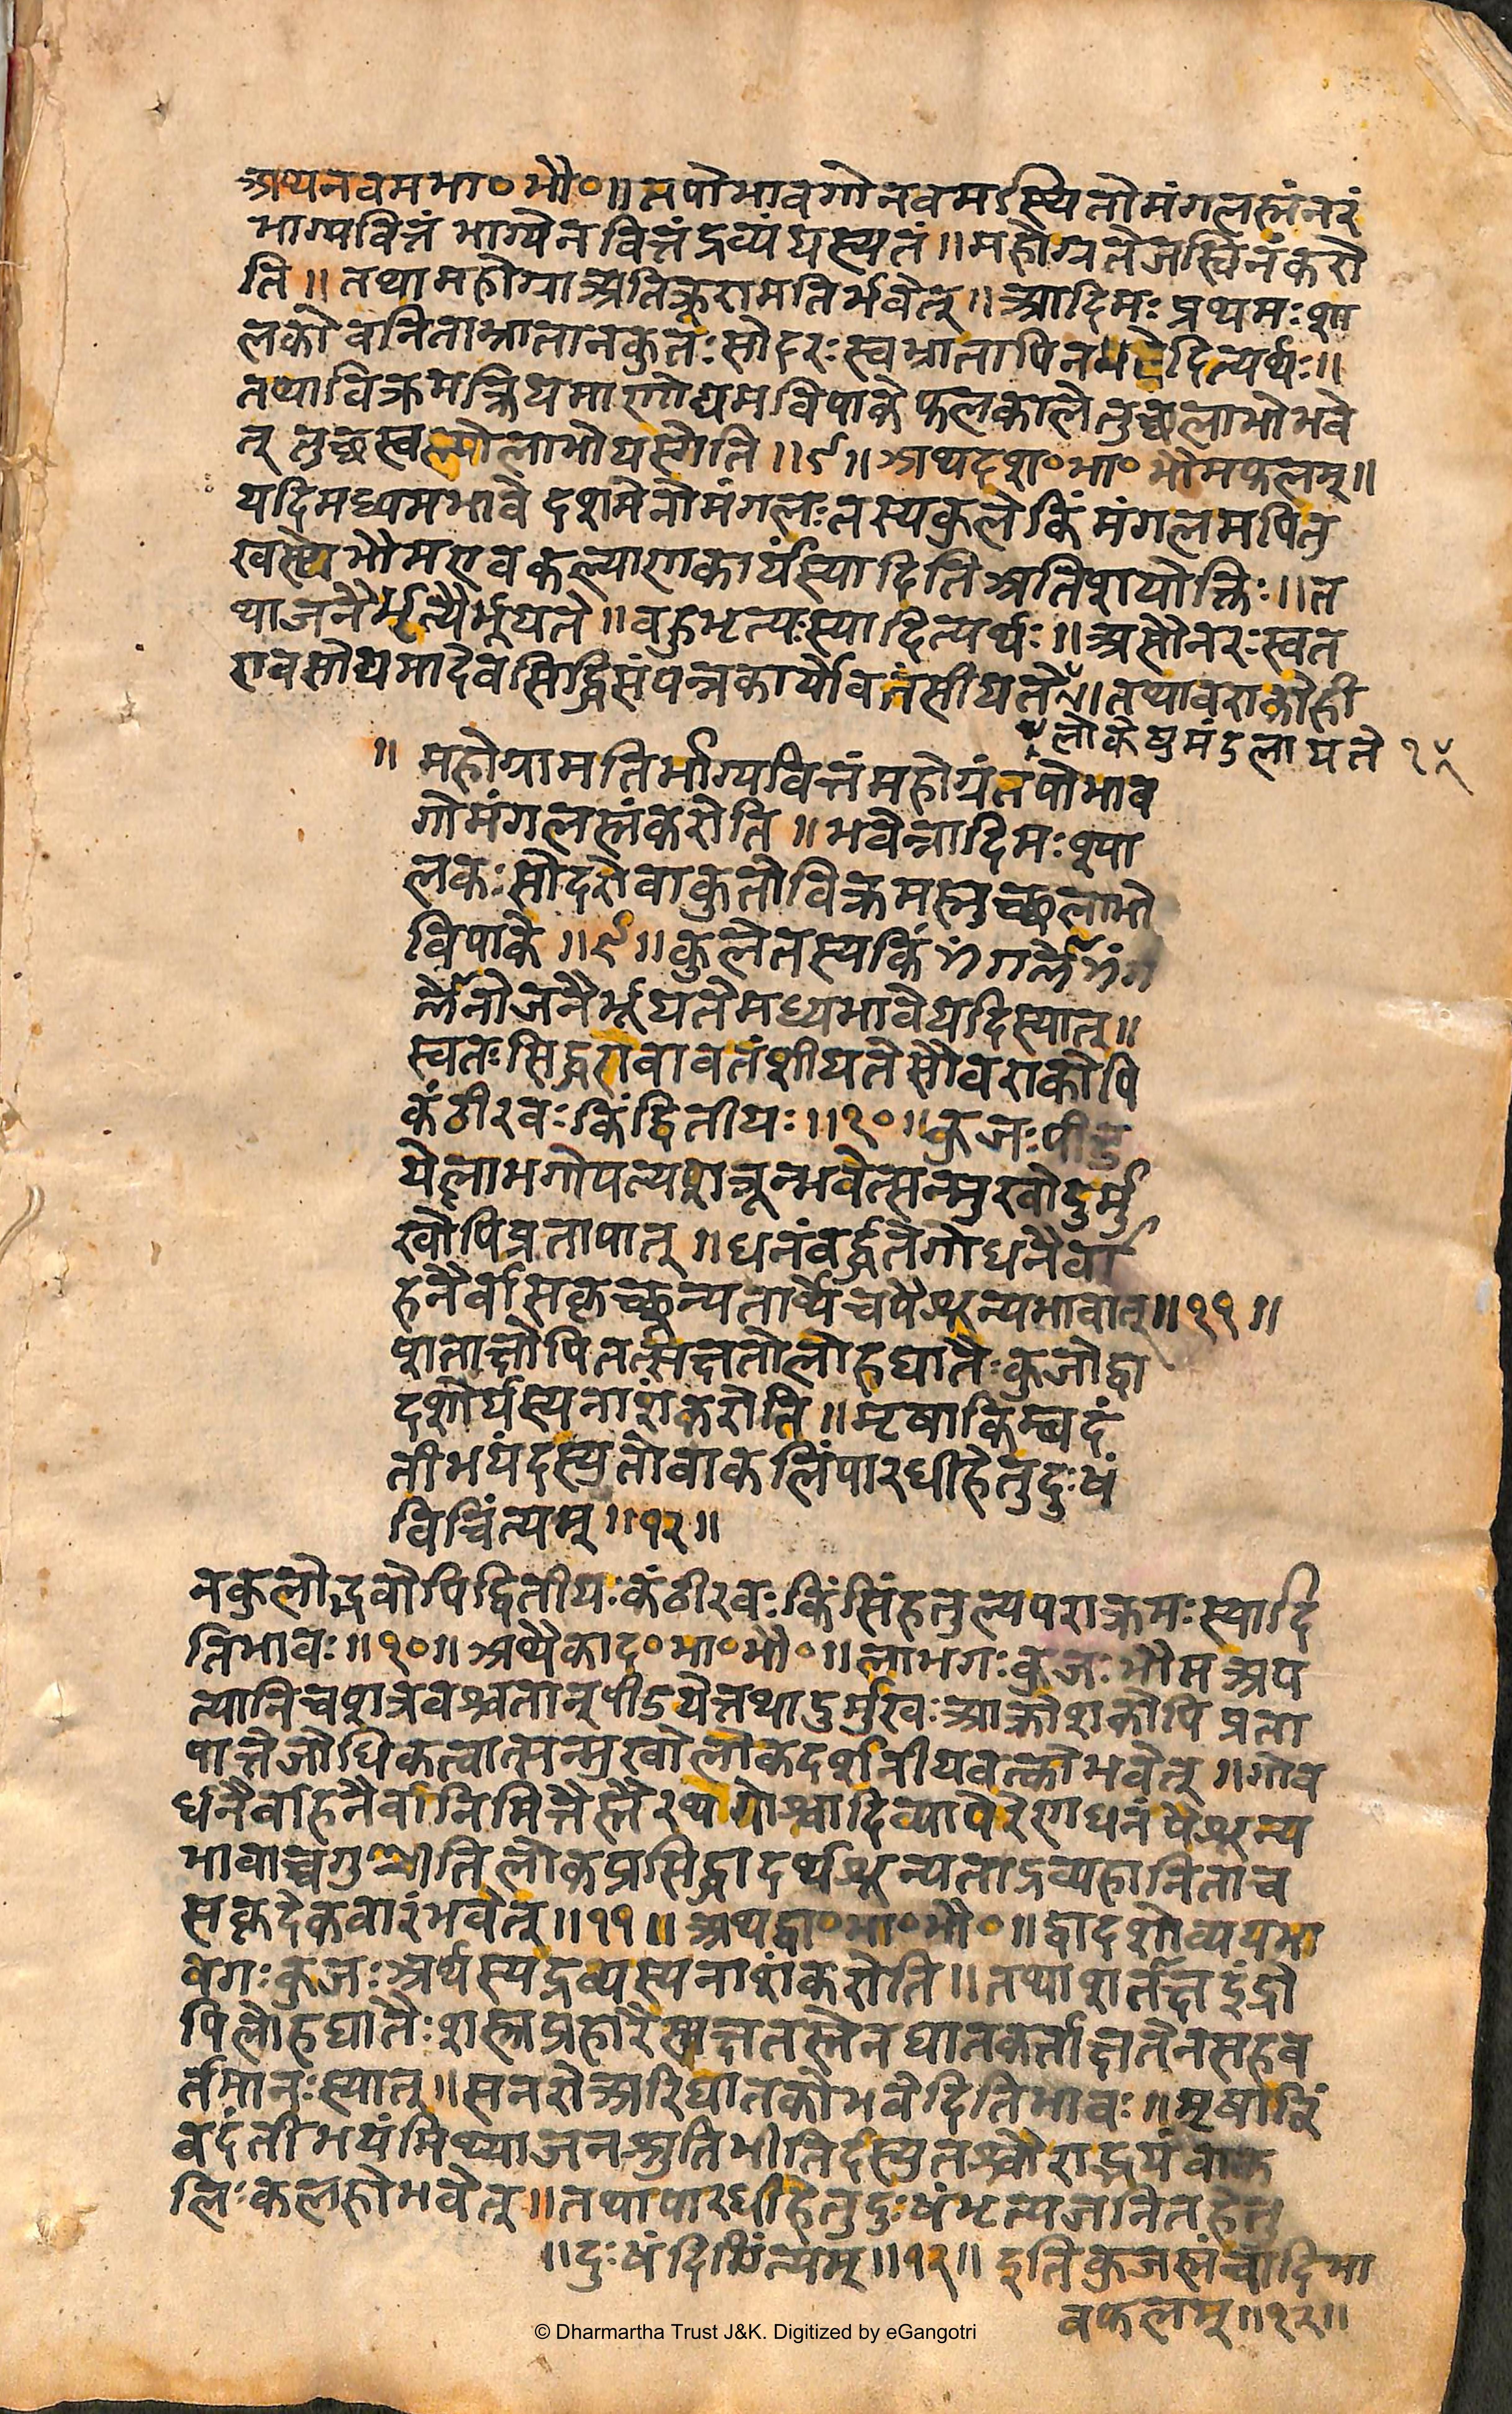 अथनवमभा०भौ०॥तपोभावगोनवमऽस्थितोमंगलस्तंनरं
भाग्यवित्तंभाग्येनवित्तंद्रव्यंयस्यतं॥महोग्रतेजस्विनंकरो
ति॥तथामहोग्राअतिक्रूरामतिर्भवेत्॥आदिमःप्रथमःशा
लकोवनिताभ्रातानकुतःसोदरःस्वभ्रातापिनभवेदित्यर्थः॥
तथाविक्रमक्रियमाणोद्यमविपाकेफलकालेतुछलाभोभवे
त् तुछस्वल्पोलाभोयस्येति॥९॥अथदश०भा०भौमफलम्॥
यदिमध्यमभावेदशमेनोमंगलःतस्यकुलेकिंमंगलमपितु
भौमएवकल्याणकार्यंस्यादितिअतिशयोक्तिः॥त
थाजनैर्भृत्यैर्भूयते॥बहुभृत्यःस्यादित्यर्थः॥असौनरःस्वत
एवसोद्यमादेवसिद्धिसंपन्नकार्योवतंसीयते॥तथावराकोही
लोकेषुमंडलायते १५
॥ महोग्रामतिर्भाग्यवित्तंमहोग्रंतपोभाव
गोमंगलस्तंकरोति॥भवेन्नादिमःश्या
लकःसोदरोवाकुतोविक्रमस्तुच्छलाभो
विपाके॥९॥कुलेतस्यकिंमंगलंमंग
लेनोजनैर्भूयतेमध्यभावेयदिस्यात्॥
स्वतःसिद्धएवावतंशीयतेसौवराकोपि
कंठीरवःकिंद्वितीयः॥१०॥कुजःपीड
येल्लाभगोपत्यशत्रून्भवेत्सन्मुखोदुर्मु
खोपिप्रतापात्॥धनंवर्द्धतेगोधनैर्वा
हनैर्वासकृच्छून्यतार्थेचपैशून्यभावात्॥११॥
शताक्षोपितत्सक्षतोलोहघातैःकुजोद्वा
दशोर्थस्यनाशंकरोति॥मृषाकिम्वदं
तीभयंदस्युतोवाकलिंपारधीहेतुदुःखं
विचिंत्यम्॥१२॥
नकुलोद्भवोपिद्वितीयःकंठीरवःकिंसिंहतुल्यपराक्रमःस्यादि
तिभावः॥१०॥अथैकाद०भा०भौ०॥लाभगःकुजःभौमअप
त्यानिचशत्रवश्चतान्पीडयेत्तथादुर्मुखःआक्रोशकोपिप्रता
पात्तेजोधिकत्वात्सन्मुखोलोकदर्शनीयवक्त्रोभवेत्॥गोव
र्धनैर्वाहनैर्वानिमित्तैस्तैरथगोश्वादिव्यापैरेणधनंपैशून्य
भावाच्चगुश्रीतिलोकप्रसिद्धादर्थशून्यताद्रव्यहानिताच
सकृदेकवारंभवेत्॥११॥अथद्वा०भा०भौ०॥द्वादशोव्ययभा
वगःकुजःअर्थस्यद्रव्यस्यनाशंकरोति॥तथाशतंक्षइंद्रो
पिलोहघातैःशस्त्रप्रहारैस्सक्षतस्तेनघातकर्त्ताक्षतेनसहव
र्तमानःस्यात्॥सनरोअरिघातकोभवेदितिभावः॥मृषाकिं
वदंतीभयंमिथ्याजनश्रुतिभीतिर्दस्युतश्चौराद्भयंवाक
लिःकलहोभवेत्॥तथापारधीहेतुदुःखंभृत्यजनितहेतु
॥दुःखंविचिंत्यम्॥१२॥ इतिकुजस्तंन्वादिभा
वफलम्॥१२॥
© Dharmartha Trust J&K. Digitized by eGangotri